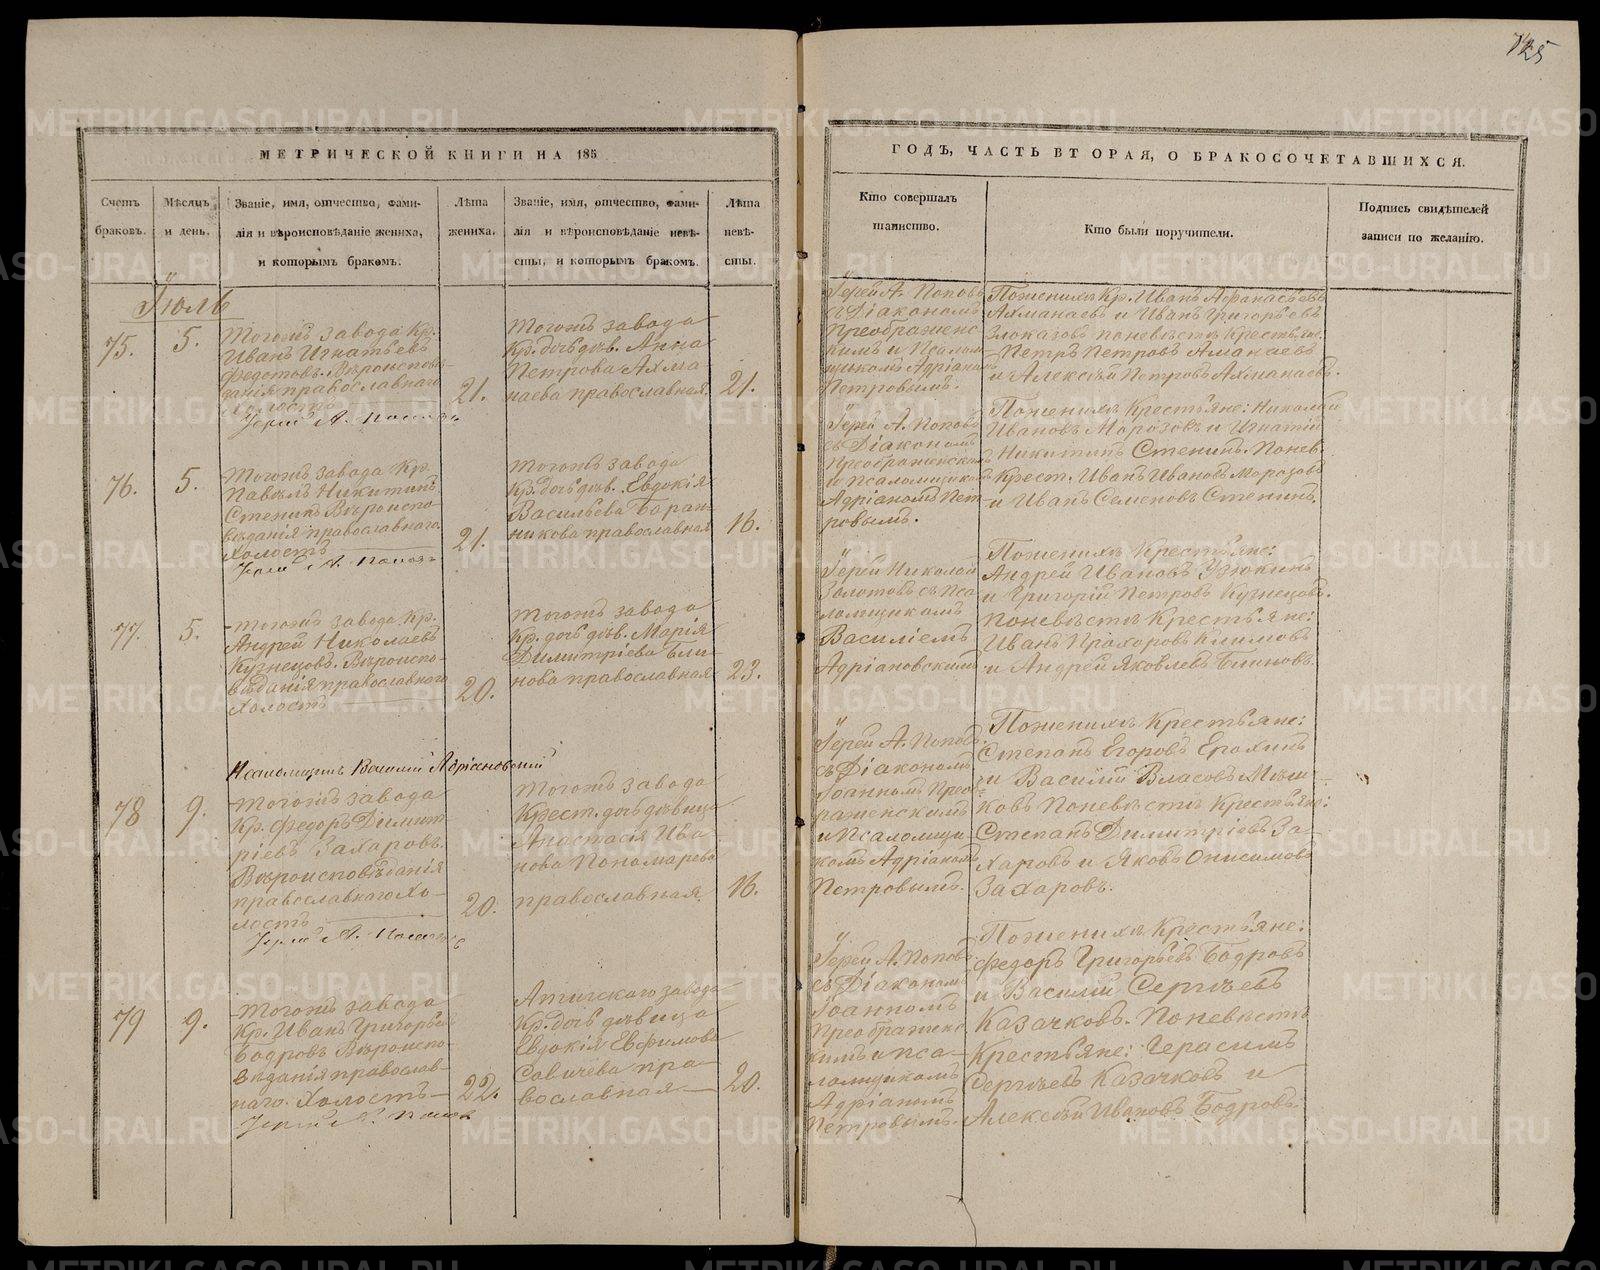 725
МЕТРИЧЕСКОЙ КНИГИ НА 185
ГОДЪ, ЧАСТЬ ВТОРАЯ, О БРАКОСОЧЕТАВШИХСЯ.
Счетъ
браковъ.
Мѣсяцъ
и день.
Званіе, имя, отчество, фами-
лія и вѣроисповѣданіе жениха,
и которымъ бракомъ.
Лѣта
жениха.
Званіе, имя, отчество, фами-
лія и вѣроисповѣданіе невѣ-
сты, и которымъ бракомъ.
Лѣта
невѣ-
сты.
Кто совершалъ
таинство.
Кто были поручители.
Подпись свидѣтелей
записи по желанію.
Іюль
75.
5.
Тогожъ завода Кр.
Иванъ Игнатьевъ
Федотовъ. Вѣроисповѣ-
данія православнаго
Холостъ
Іерей А. Поповъ
21.
Тогожъ завода
Кр. дочь дѣв. Анна
Петрова Ахма
наева православная.
21.
Іерей А. Поповъ
съ Діакономъ
Преображенс
кимъ и Псалом
щикомъ Адріаномъ
Петровымъ.
Пожениxѣ Кр. Иванъ Афанасьевъ
Ахманаевъ и Иванъ Григорьевъ
Злоказовъ поневѣстѣ крестьяне.
Петръ Петровъ Аманаевъ
и Алексѣй Петровъ Ахманаевъ.
76.
5.
Тогожъ завода Кр.
Павелъ Никитинъ
Стенинъ Вѣроиспо-
вѣданія православнаго
Холостъ
Іерей А. Поповъ
21.
Тогожъ завода
Кр. дочь дѣв. Евдокія
Васильева Баран-
никова православная
18.
Іерей А. Поповъ
съ Діакономъ
Преображенскимъ
и псаломщикомъ
Адріаномъ Пет
ровымъ.
Поженихѣ Крестьяне: Николай
Ивановъ Морозовъ и Игнатій
Никитинъ Стенинъ. Понев.
Крест. Иванъ Ивановъ Морозовъ
и Иванъ Семеновъ Стенинъ.
77.
5.
Тогожъ завода Кр.
Андрей Николаевъ
Кузнецовъ. Вѣроиспо-
вѣданія православнаго
Холостъ
20.
Тогожъ завода
Кр. дочь дѣв. Марія
Димитріева Бли-
нова православная
23.
Іерей Николай
Золотовъ съ Пса
ломщикомъ
Василіемъ
Адріановскимъ
Поженихѣ Крестьяне:
Андрей Ивановъ Узюкинъ
и Григорій Петровъ Кузнецовъ.
поневѣстѣ Крестьяне:
Иванъ Прохоровъ Климовъ
и Андрей Яковлевъ Блиновъ.
Псаломщикъ Василій Адріановскій
78
9.
Тогожъ завода
Кр. Федоръ Димит-
ріевъ Захаровъ.
Вѣроисповѣданія
православнаго Хо-
лостъ
Іерей А. Поповъ
20.
Тогожъ завода
Крест. дочь дѣвица
Анастасія Ива-
нова Пономарева
православная.
18.
Іерей А. Поповъ
съ Діакономъ
Іоанномъ Преоб-
раженскимъ
и Псаломщи-
комъ Адріаномъ
Петровымъ.
Поженихѣ Крестьяне:
Степанъ Егоровъ Ерохинъ
и Василій Власовъ Мѣш-
ковъ Поневѣстѣ Крестьяне:
Степанъ Димитріевъ За-
харовъ и Яковъ Онисимовъ
Захаровъ.
79
9.
Тогожъ завода
Кр. Иванъ Григорьевъ
Бодровъ Вѣроиспо-
вѣданія православ-
наго. Холостъ
Іерей А. Поповъ
22.
Атигскаго завода
Кр. дочь дѣвица
Евдокія Евфимова
Савичева пра-
вославная
20.
Іерей А. Поповъ
съ Діакономъ
Іоанномъ
Преображенс
кимъ и пса-
ломщикомъ
Адріаномъ
Петровымъ.
Поженихѣ Крестьяне:
Федоръ Григорьевъ Бодровъ
и Василій Сергѣевъ
Казачковъ. Поневѣстѣ
Крестьяне: Герасимъ
Сергѣевъ Казачковъ и
Алексѣй Ивановъ Бодровъ.